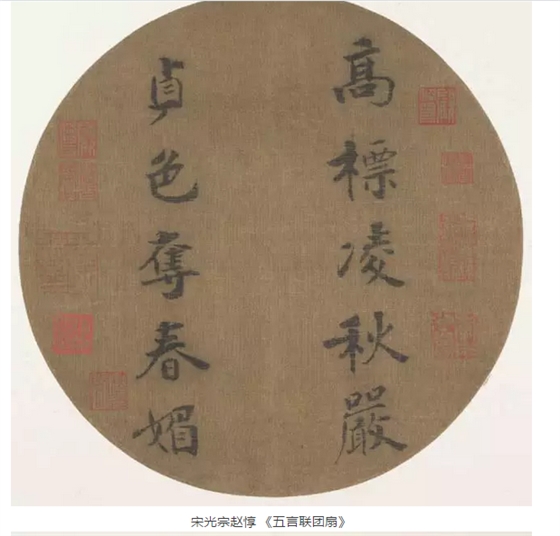 高標凌秋嚴
貞色奪春媚
宋光宗赵惇 《五言联团扇》